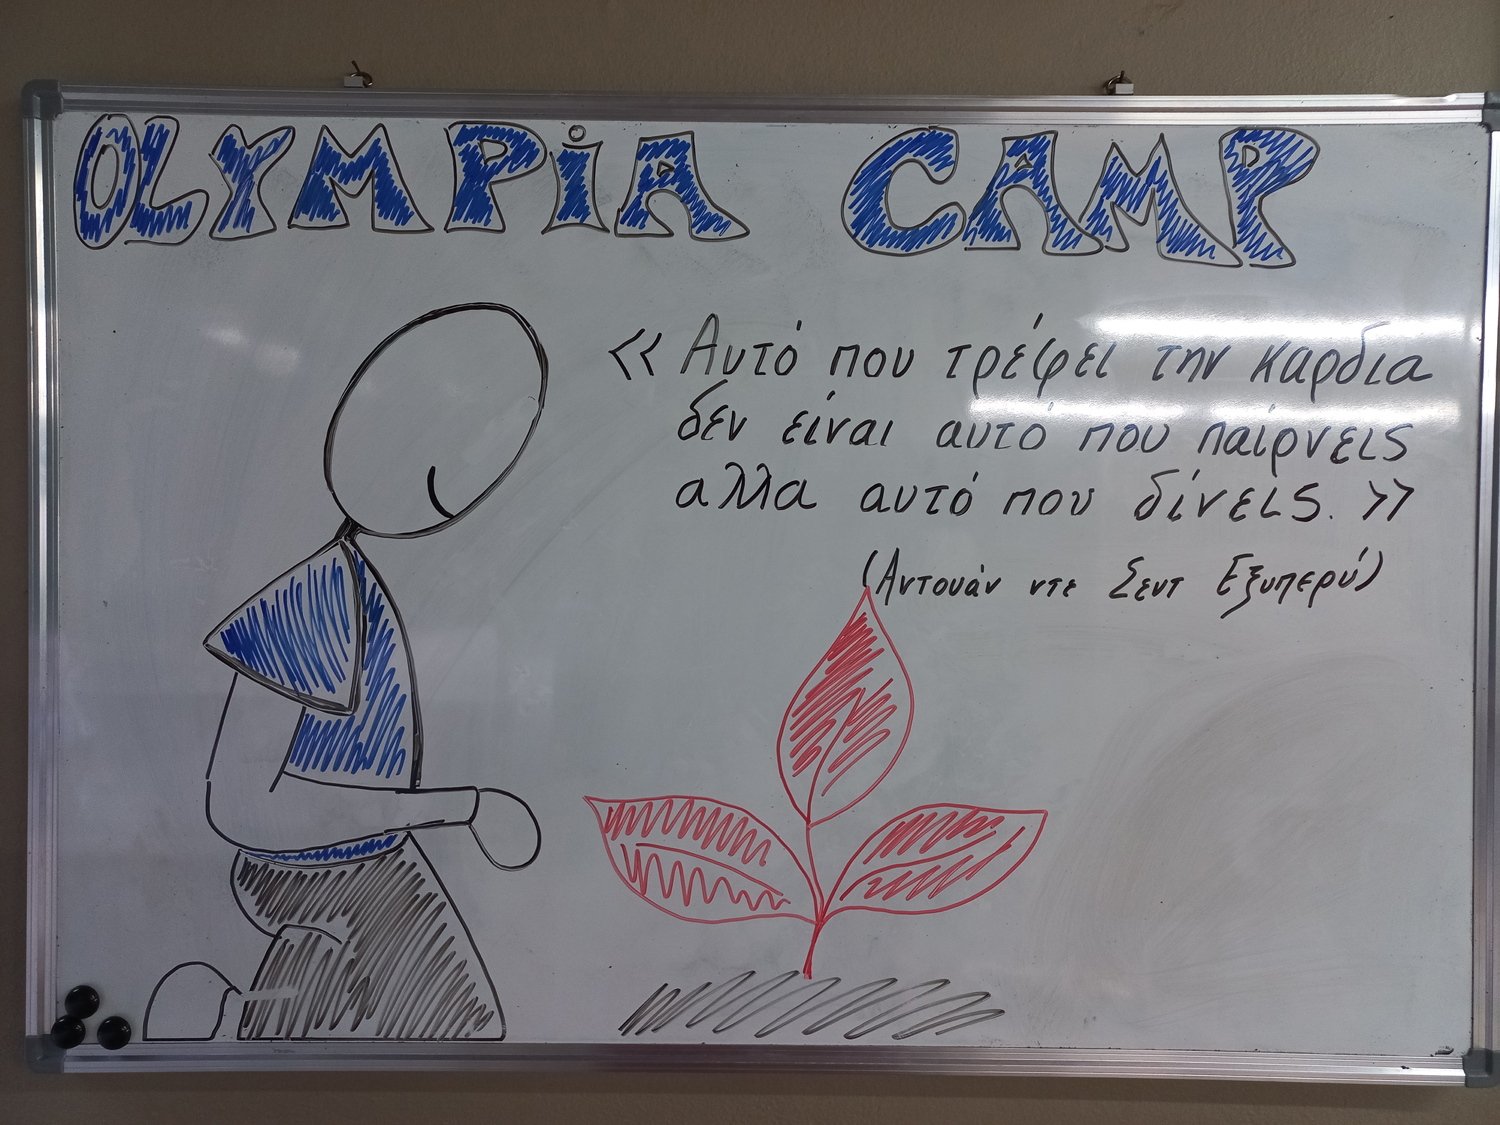 OLYMPiA CAMP
<< Αυτό που τρέφει την καρδια
δεν είναι αυτό που παίρνεις
αλλα αυτό που δίνεις. >>
(Αντουάν ντε Σεντ Εξυπερύ)